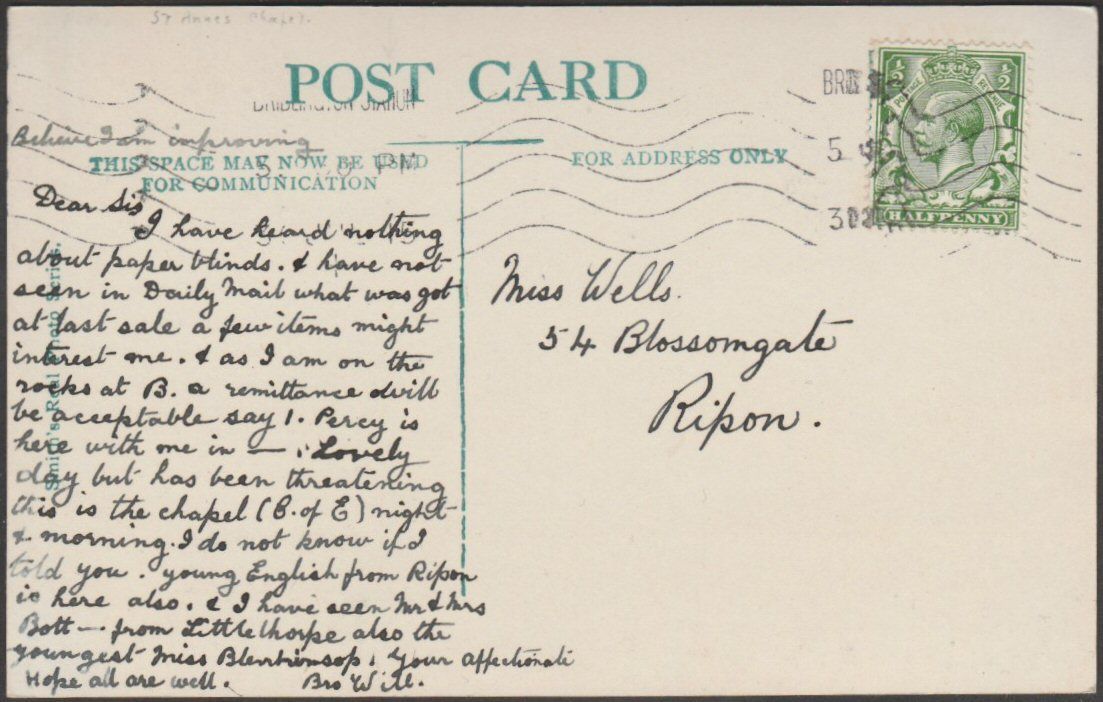 St Annes Chapel.
POST CARD
BRIDLINGTON STATION
Believe I am improving
THIS SPACE MAY NOW BE USED
FOR COMMUNICATION
FOR ADDRESS ONLY
PM
BRID
5
POSTAGE REVENUE
½ ½
HALFPENNY
Dear Sis
I have heard nothing
about paper blinds. & have not
seen in Daily Mail what was got
at last sale a few items might
interest me. & as I am on the
rocks at B. a remittance will
be acceptable say 1. Percy is
here with me in — Lovely
day but has been threatening
this is the chapel (C. of E) night
& morning. I do not know if I
told you. young English from Ripon
is here also. & I have seen Mr & Mrs
Bott — from Littlethorpe also the
youngest Miss Your affectionate
Hope all are well. Bro Will.
Miss Wells.
54 Blossomgate
Ripon.
Real Photo Series.